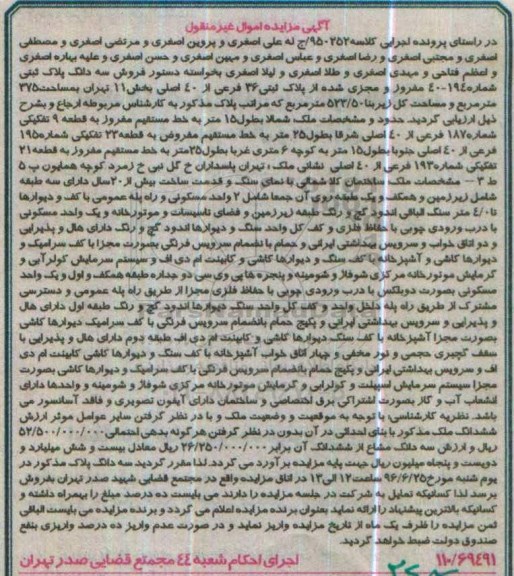 آگهی مزایده اموال غیرمنقول
در راستای پرونده اجرایی کلاسه ۹۵۰۲۵۲/ج له علی اصغری و پروین اصغری و مرتضی اصغری و مصطفی
اصغری و مجتبی اصغری و رضا اصغری و عباس اصغری و مهین اصغری و حسن اصغری و علیه بهاره اصغری
و اعظم فتاحی و مهدی اصغری و طلا اصغری و لیلا اصغری بخواسته دستور فروش سه دانگ پلاک ثبتی
شماره ۱۹۴-۴۰ مفروز و مجزی شده از پلاک ثبتی ۳۶ فرعی از ۴۰ اصلی بخش ۱۱ تهران بمساحت ۳۷۵
مترمربع و مساحت کل زیربنا ۵۲۳/۵۰ مترمربع که مراتب پلاک مذکور به کارشناس مربوطه ارجاع و بشرح
ذیل ارزیابی گردید. حدود و مشخصات ملک شمالا بطول ۱۵ متر به خط مستقیم مفروز به قطعه ۹ تفکیکی
شماره ۱۸۷ فرعی از ۴۰ اصلی شرقا بطول ۲۵ متر به خط مستقیم مفروض به قطعه ۲۳ تفکیکی شماره ۱۹۵
فرعی از ۴۰ اصلی جنوبا بطول ۱۵ متر به کوچه ۶ متری غربا بطول ۲۵ متر به خط مستقیم مفروز به قطعه ۲۱
تفکیکی شماره ۱۹۳ فرعی از ۴۰ اصلی نشانی ملک: تهران پاسداران خ گل نبی خ زمرد کوچه همایون پ ۵
ط ۳ - مشخصات ملک ساختمان کلا شمالی با نمای سنگ و قدمت ساخت بیش از ۲۰ سال دارای سه طبقه
شامل زیرزمین و همکف و یک طبقه روی آن جمعا شامل ۲ واحد مسکونی و راه پله عمومی با کف و دیوارها
تا ۴/۰ متر سنگ الباقی اندود گچ و رنگ طبقه زیرزمین و فضای تاسیسات و موتورخانه و یک واحد مسکونی
با درب ورودی چوبی با حفاظ فلزی و کف کل واحد سنگ و دیوارها اندود گچ و رنگ دارای هال و پذیرایی
و دو اتاق خواب و سرویس بهداشتی ایرانی و حمام با انضمام سرویس فرنگی بصورت مجزا با کف سرامیک و
دیوارها کاشی و آشپزخانه با کف سنگ و دیوارها کاشی و کابینت ام دی اف و سیستم سرمایش کولر آبی و
گرمایش موتورخانه مرکزی شوفاژ و شومینه و پنجره ها پی وی سی دو جداره طبقه همکف و اول و یک واحد
مسکونی بصورت دوبلکس با درب ورودی چوبی با حفاظ فلزی مجزا از طریق راه پله عمومی و دسترسی
مشترک از طریق راه پله داخل واحد و کف کل واحد سنگ دیوارها اندود گچ و رنگ طبقه اول دارای هال
و پذیرایی و سرویس بهداشتی ایرانی و پکیج حمام بانضمام سرویس فرنگی با کف سرامیک دیوارها کاشی
بصورت مجزا آشپزخانه با کف سنگ دیوارها کاشی و کابینت ام دی اف طبقه دوم دارای هال و پذیرایی با
سقف گچبری حجمی و نور مخفی و چهار اتاق خواب آشپزخانه با کف سنگ و دیوارها کاشی کابینت ام دی
اف و سرویس بهداشتی ایرانی و پکیج تمام بانضمام سرویس فرنگی با کف سرامیک و دیوارها کاشی بصورت
مجزا سیستم سرمایش اسپیلت و کولرآبی و گرمایش موتورخانه مرکزی شوفاژ و شومینه و واحدها دارای
انشعاب آب و گاز بصورت اشتراکی برق اختصاصی و ساختمان دارای آیفون تصویری و فاقد آسانسور می
باشد. نظریه کارشناسی: با توجه به موقعیت و وضعیت ملک و با در نظر گرفتن سایر عوامل موثر ارزش
ششدانگ ملک مذکور با بنای احداثی در آن بدون در نظر گرفتن هرگونه بدهی احتمالی ۵۲/۵۰۰/۰۰۰/۰۰۰
ریال و ارزش سه دانگ مشاع از ششدانگ آن برابر ۲۶/۲۵۰/۰۰۰/۰۰۰ ریال معادل بیست و شش میلیارد و
دویست و پنجاه میلیون ریال جهت پایه مزایده برآورد می گردد. لذا مقرر گردید سه دانگ پلاک مذکور در
یوم شنبه مورخ ۹۶/۶/۲۵ ساعت ۱۲ الی ۱۳ در اتاق مزایده واقع در مجتمع قضایی شهید صدر تهران بفروش
برسد لذا کسانیکه تمایل به شرکت در جلسه مزایده را دارند می بایست ده درصد مبلغ را بهمراه داشته و
کسانیکه بالاترین پیشنهاد را ارائه نماید بعنوان برنده مزایده اعلام می گردد و برنده مزایده می بایست الباقی
ثمن مزایده را ظرف یک ماه از تاریخ مزایده واریز نماید و در صورت عدم واریز ده درصد واریزی بنفع
صندوق دولت ضبط خواهد گردید.
۱۱۰/۶۹۴۹۱ اجرای احکام شعبه ۴۴ مجتمع قضایی صدر تهران